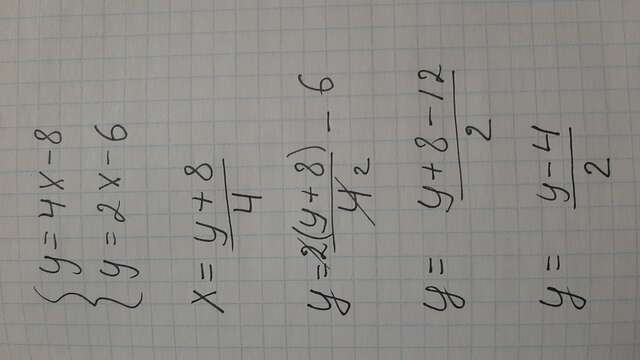 y = 4x - 8
y = 2x - 6
x = (y + 8)/4
y = 2(y + 8)/4 2 - 6
y = (y + 8 - 12)/2
y = (y - 4)/2